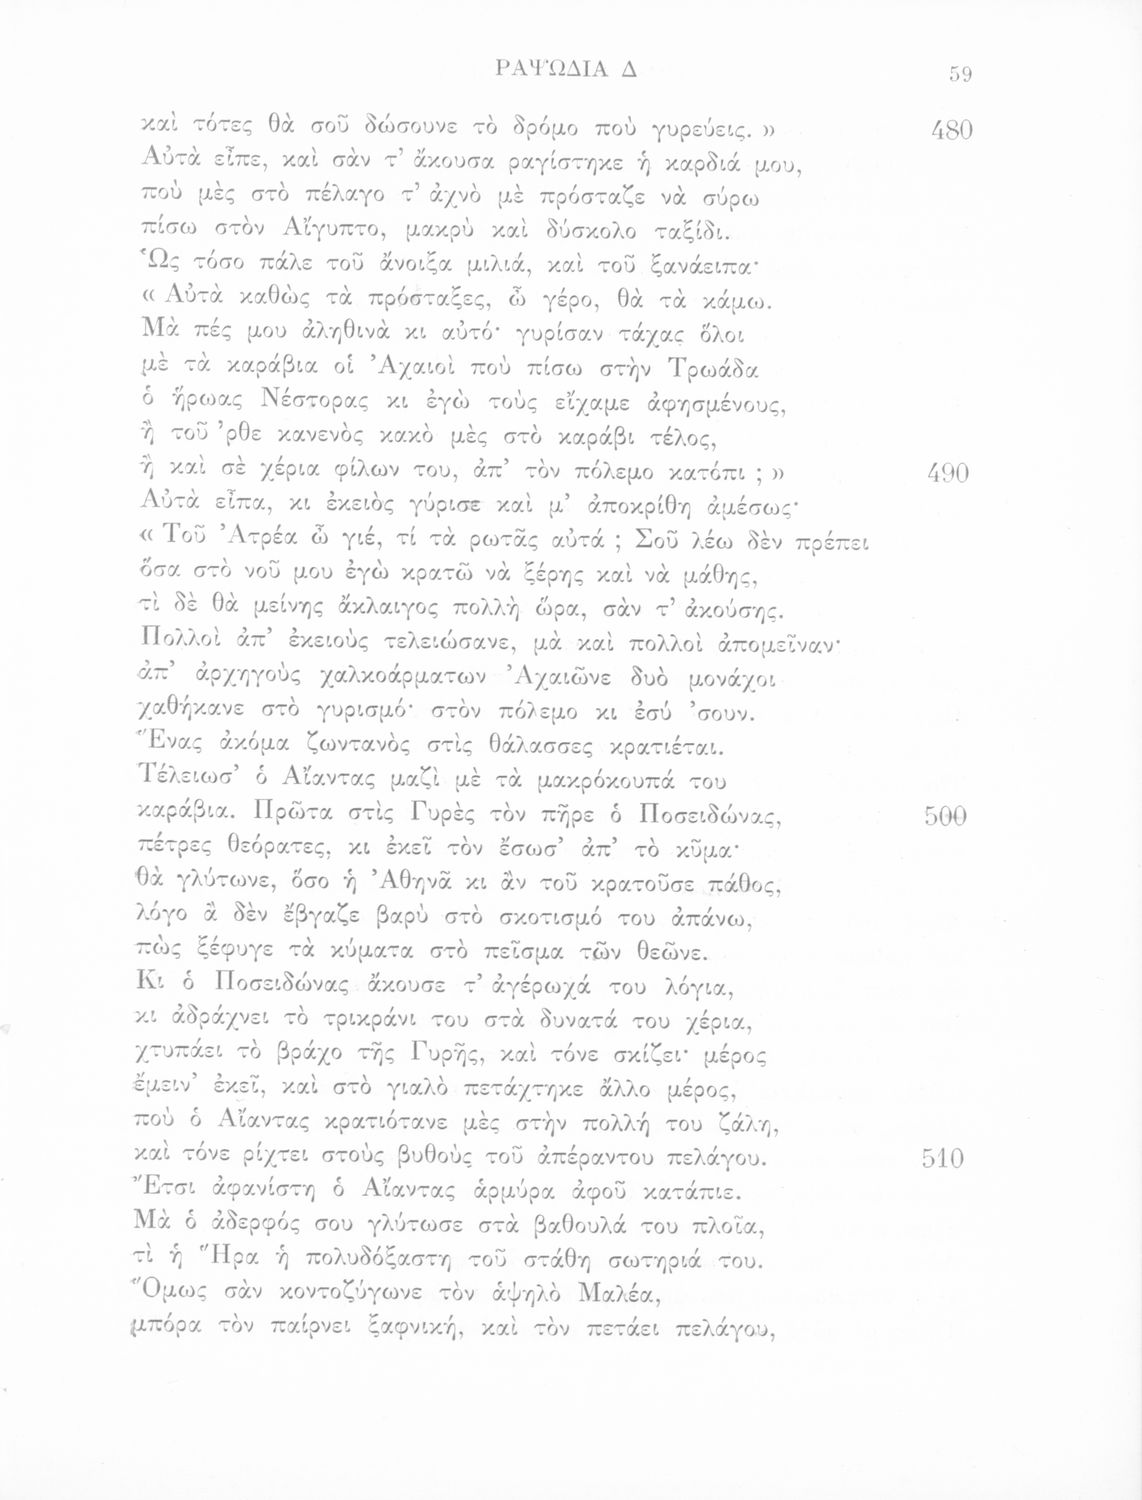 ΡΑΨΩΔΙΑ Δ 59
καὶ τότες θὰ σοῦ δώσουνε τὸ δρόμο ποὺ γυρεύεις. » 480
Αὐτὰ εἶπε, καὶ σὰν τ’ ἄκουσα ραγίστηκε ἡ καρδιά μου,
ποὺ μὲς στὸ πέλαγο τ’ ἀχνὸ μὲ πρόσταζε νὰ σύρω
πίσω στὸν Αἴγυπτο, μακρὺ καὶ δύσκολο ταξίδι.
Ὡς τόσο πάλε τοῦ ἄνοιξα μιλιά, καὶ τοῦ ξανάειπα·
« Αὐτὰ καθὼς τὰ πρόσταξες, ὦ γέρο, θὰ τὰ κάμω.
Μὰ πές μου ἀληθινὰ κι αὐτό· γυρίσαν τάχας ὅλοι
μὲ τὰ καράβια οἱ Ἀχαιοὶ ποὺ πίσω στὴν Τρωάδα
ὁ ἥρωας Νέστορας κι ἐγὼ τοὺς εἴχαμε ἀφησμένους,
ἢ τοῦ ’ρθε κανενὸς κακὸ μὲς στὸ καράβι τέλος,
ἢ καὶ σὲ χέρια φίλων του, ἀπ’ τὸν πόλεμο κατόπι ; » 490
Αὐτὰ εἶπα, κι ἐκειὸς γύρισε καὶ μ’ ἀποκρίθη ἀμέσως·
« Τοῦ Ἀτρέα ὦ γιέ, τί τὰ ρωτᾶς αὐτά ; Σοῦ λέω δὲν πρέπει
ὅσα στὸ νοῦ μου ἐγὼ κρατῶ νὰ ξέρης καὶ νὰ μάθης,
τὶ δὲ θὰ μείνης ἄκλαιγος πολλὴ ὥρα, σὰν τ’ ἀκούσης.
Πολλοὶ ἀπ’ ἐκειοὺς τελειώσανε, μὰ καὶ πολλοὶ ἀπομεῖναν·
ἀπ’ ἀρχηγοὺς χαλκοάρματων Ἀχαιῶνε δυὸ μονάχοι
χαθήκανε στὸ γυρισμό· στὸν πόλεμο κι ἐσύ ’σουν.
Ἕνας ἀκόμα ζωντανὸς στὶς θάλασσες κρατιέται.
Τέλειωσ’ ὁ Αἴαντας μαζὶ μὲ τὰ μακρόκουπά του
καράβια. Πρῶτα στὶς Γυρὲς τὸν πῆρε ὁ Ποσειδώνας, 500
πέτρες θεόρατες, κι ἐκεῖ τὸν ἔσωσ’ ἀπ’ τὸ κῦμα·
θὰ γλύτωνε, ὅσο ἡ Ἀθηνᾶ κι ἂν τοῦ κρατοῦσε πάθος,
λόγο ἂ δὲν ἔβγαζε βαρὺ στὸ σκοτισμό του ἀπάνω,
πὼς ξέφυγε τὰ κύματα στὸ πεῖσμα τῶν θεῶνε.
Κι ὁ Ποσειδώνας ἄκουσε τ’ ἀγέρωχά του λόγια,
κι ἀδράχνει τὸ τρικράνι του στὰ δυνατά του χέρια,
χτυπάει τὸ βράχο τῆς Γυρῆς, καὶ τόνε σκίζει· μέρος
ἔμειν’ ἐκεῖ, καὶ στὸ γιαλὸ πετάχτηκε ἄλλο μέρος,
ποὺ ὁ Αἴαντας κρατιότανε μὲς στὴν πολλή του ζάλη,
καὶ τόνε ρίχτει στοὺς βυθοὺς τοῦ ἀπέραντου πελάγου. 510
Ἔτσι ἀφανίστη ὁ Αἴαντας ἁρμύρα ἀφοῦ κατάπιε.
Μὰ ὁ ἀδερφός σου γλύτωσε στὰ βαθουλά του πλοῖα,
τὶ ἡ Ἥρα ἡ πολυδόξαστη τοῦ στάθη σωτηριά του.
Ὅμως σὰν κοντοζύγωνε τὸν ἁψηλὸ Μαλέα,
μπόρα τὸν παίρνει ξαφνική, καὶ τὸν πετάει πελάγου,